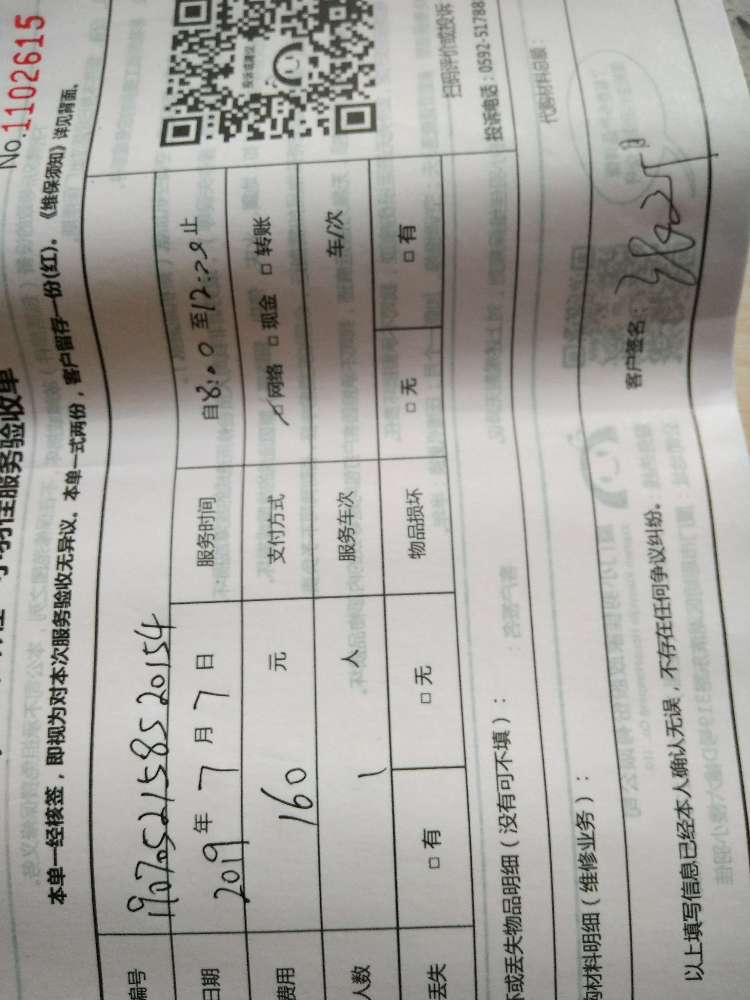 No.1102615
服务验收单
本单一经核签，即视为对本次服务验收无异议。本单一式两份，客户留存一份(红)。《维保须知》详见背面。
编号 1907052158520154
日期 2019年7月7日 服务时间 自8:00至12:00止
费用 160元 支付方式 ☑网络 □现金 □转账
人数 1人 服务车次 车/次
丢失 □有 □无 物品损坏 □无 □有
投诉或建议
扫码评价或投诉
投诉电话:0592-51788
坏或丢失物品明细（没有可不填）:
代购材料总额:
购材料明细（维修业务）:
以上填写信息已经本人确认无误，不存在任何争议纠纷。
客户签名: